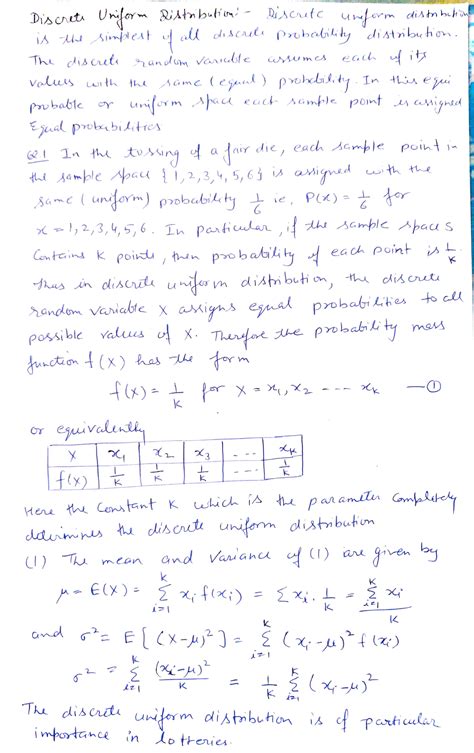 Discrete Uniform Distribution:- Discrete uniform distribution
is the simplest of all discrete probability distribution.
The discrete random variable assumes each of its
values with the same (equal) probability. In this equi
probable or uniform space each sample point is assigned
Equal probabilities
In the tossing of a fair die, each sample point in
the sample space {1,2,3,4,5,6} is assigned with the
same (uniform) probability 1/6 ie, P(x) = 1/6 for
x = 1,2,3,4,5,6. In particular, if the sample space S
contains K points, then probability of each point is 1/K.
Thus in discrete uniform distribution, the discrete
random variable X assigns equal probabilities to all
possible values of X. Therefore the probability mass
function f(X) has the form
f(X) = 1/K for X = x₁, x₂ --- xₖ —①
or equivalently
X x₁ x₂ x₃ --- xₖ
f(X) 1/K 1/K 1/K --- 1/K
Here the constant K which is the parameter completely
determines the discrete uniform distribution
(1) The mean and variance of (1) are given by
μ = E(X) = Σ_{i=1}^{K} xᵢ f(xᵢ) = Σ xᵢ · 1/K = Σ_{i=1}^{K} xᵢ / K
and σ² = E[(X-μ)²] = Σ_{i=1}^{K} (xᵢ-μ)² f(xᵢ)
σ² = Σ_{i=1}^{K} (xᵢ-μ)²/K = 1/K Σ_{i=1}^{K} (xᵢ-μ)²
The discrete uniform distribution is of particular
importance in lotteries.